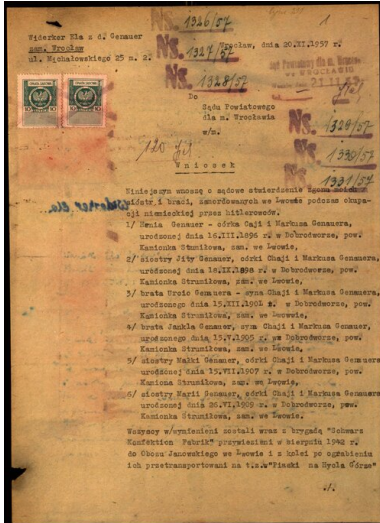 Ns. 1326/57
Ns. 1327/57
Ns. 1328/57
Widerker Ela z d. Genauer
zam. Wrocław
ul. Michałowskiego 25 m. 2.
Wrocław, dnia 20.XI.1957 r.
Sąd Powiatowy dla m. Wrocławia
we WROCŁAWIU
21.11.57
Do
Sądu Powiatowego
dla m. Wrocławia
w/m.
Ns. 1329/57
Ns. 1330/57
Ns. 1331/57
120
Wniosek
Niniejszym wnoszę o sądowe stwierdzenie zgonu moich
sióstr i braci, zamordowanych we Lwowie podczas okupa-
cji niemieckiej przez hitlerowców.
1/ Henia Genauer - córka Caji i Markusa Genauera,
urodzonej dnia 16.XII.1896 r. w Dobrodworze, pow.
Kamionka Strumiłowa, zam. we Lwowie,
2/ siostry Jity Genauer, córki Chaji i Markusa Genauera,
urodzonej dnia 18.XII.1898 r. w Dobrodworze, pow.
Kamionka Strumiłowa, zam. we Lwowie,
3/ brata Urcio Genauera - syna Chaji i Markusa Genauera,
urodzonego dnia 15.XII.1901 r. w Dobrodworze, pow.
Kamionka Strumiłowa, zam. we Lwowie,
4/ brata Jankla Genauer, syna Chaji i Markusa Genauer,
urodzonego dnia 15.V.1905 r. w Dobrodworze, pow.
Kamionka Strumiłowa, zam. we Lwowie,
5/ siostry Malki Genauer, córki Chaji i Markusa Genauera
urodzonej dnia 15.VII.1907 r. w Dobrodworze, pow.
Kamiona Strumiłowa, zam. we Lwowie,
6/ siostry Marii Genauer, córki Chaji i Markusa Genauera
urodzonej dnia 26.VI.1909 r. w Dobrodworze, pow.
Kamionka Strumiłowa, zam. we Lwowie.
Wszyscy w/wymienieni zostali wraz z brygadą "Schwarz
Konfektion Fabrik" przywiezieni w sierpniu 1942 r.
do Obozu Janowskiego we Lwowie i z kolei po ograbieniu
ich przetransportowani na t.zw. "Piaski na Hycla Górze"